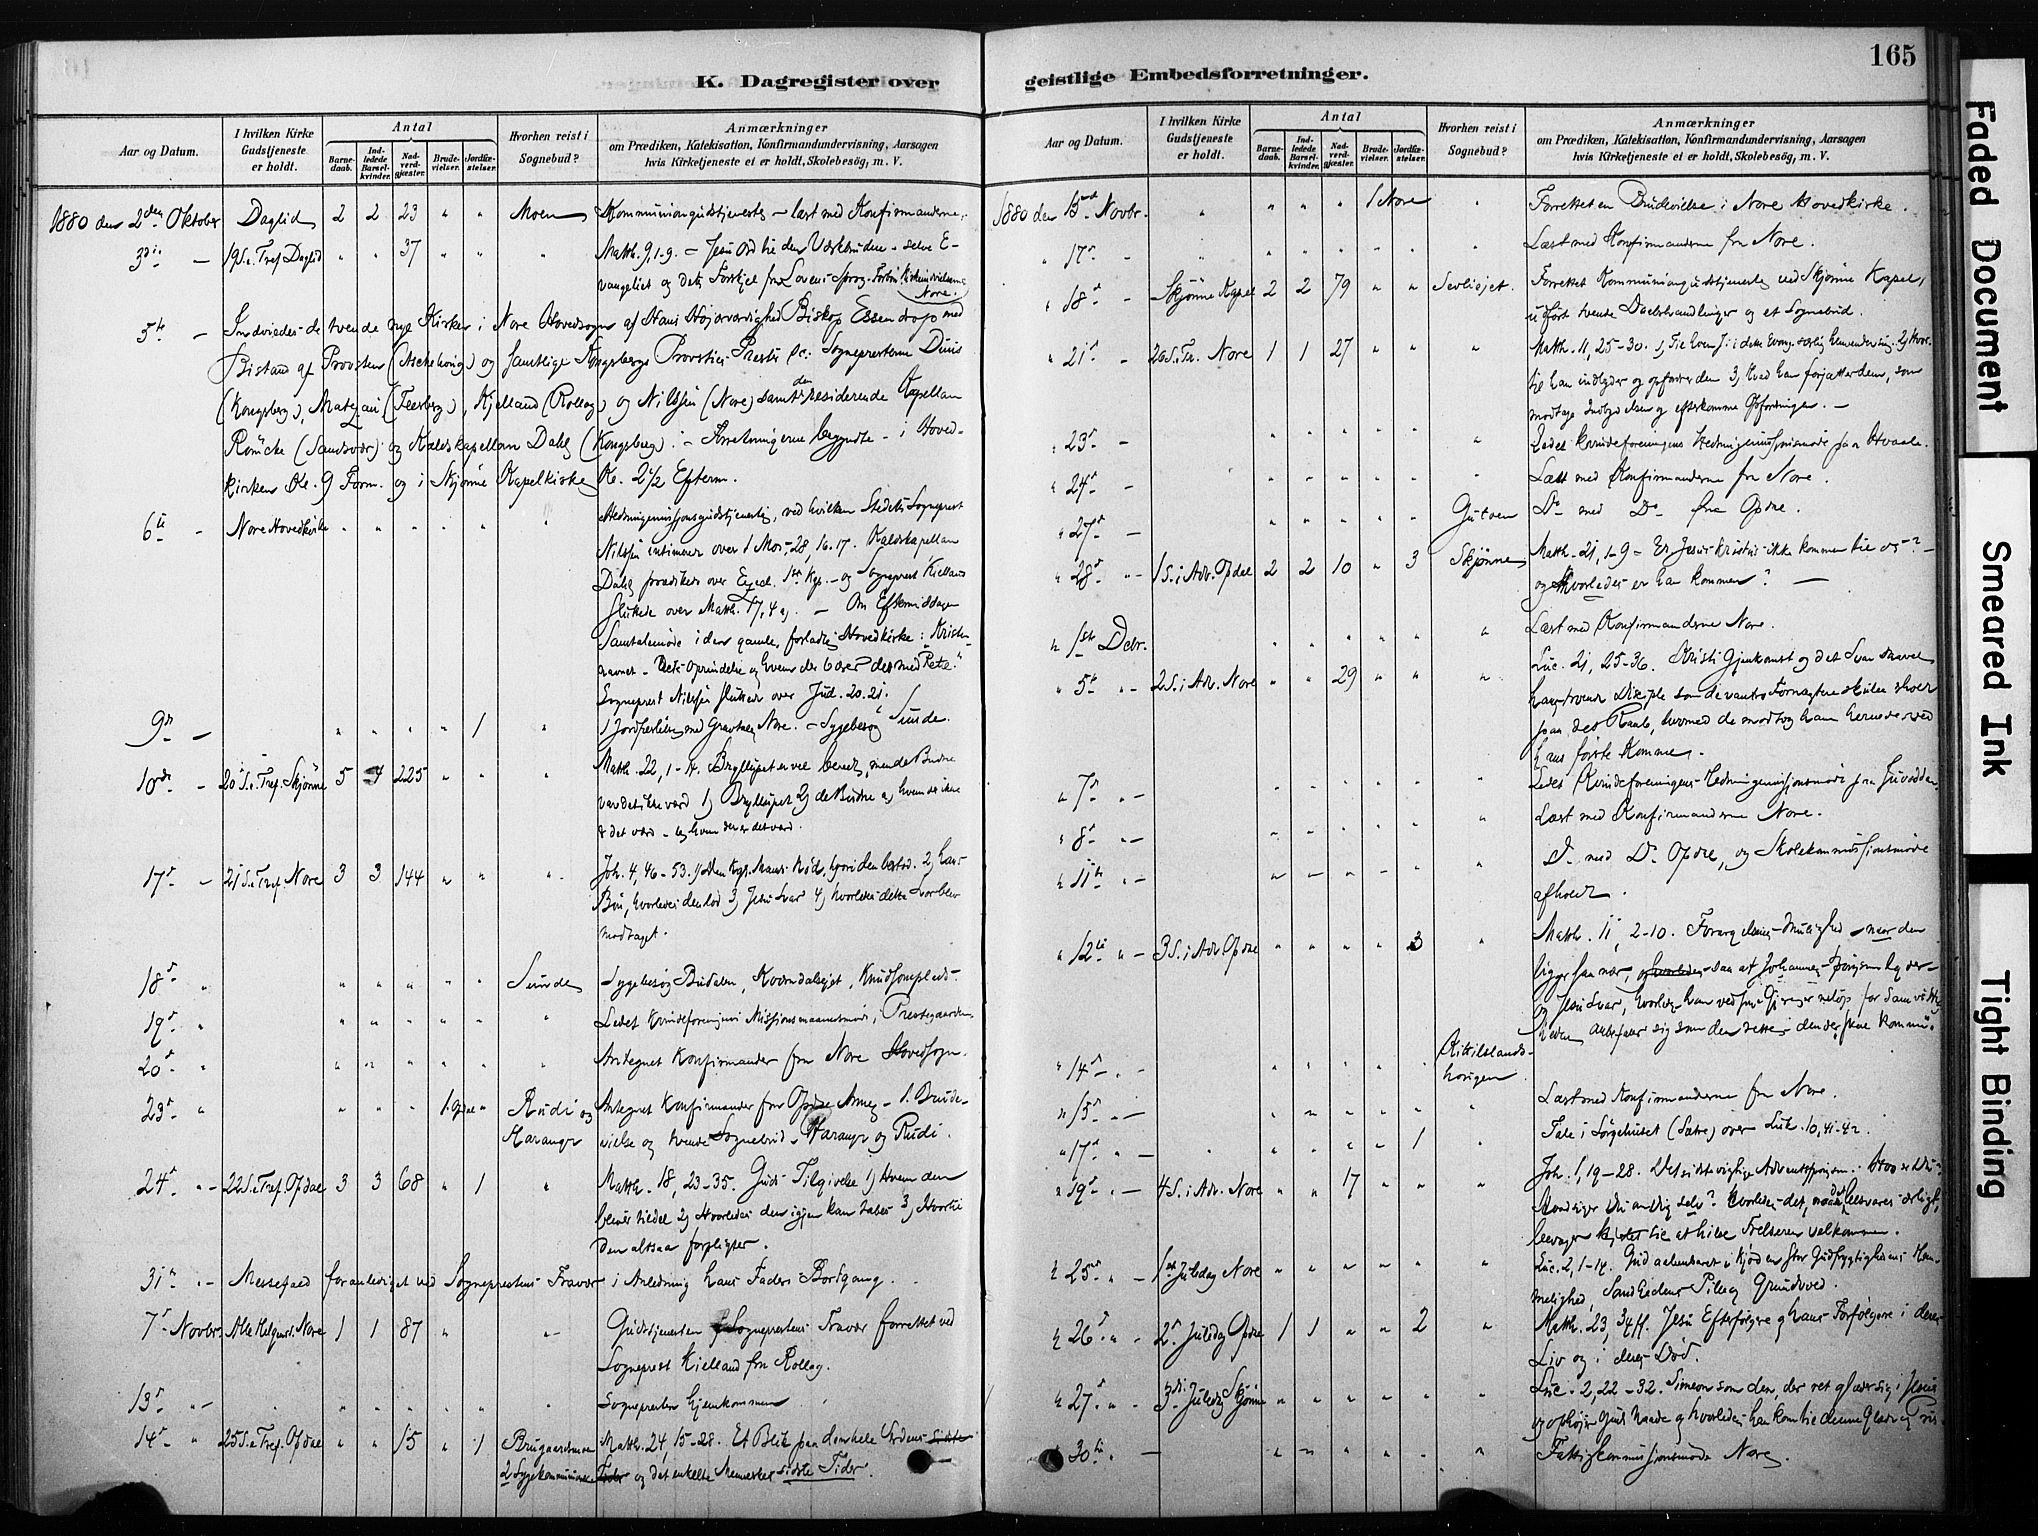 165
K. Dagregister over
Aar og Datum.
I hvilken Kirke Gudstjeneste er holdt.
Antal
Barnedaab.
Indledede Barselkvinder.
Nadverdgjæster.
Brudevielser.
Jordfæstelser.
Hvorhen reist i Sognebud?
Anmærkninger
om Prædiken, Katekisation, Konfirmandundervisning, Aarsagen
hvis Kirketjeneste ei er holdt, Skolebesøg, m. V.
1880 den 2den Oktober Daglid 2 2 23 " " Moen Kommuniongudstjeneste - læst med Konfirmanderne.
3die — 19 S. e. Tref. Daglid " " 37 " " " Matth. 9, 1-9. - Jesu Ord til den Værkbrudne - selve E-
vangeliet og dets Forskjel fra Lovens Sprog.
Nore.
5te — Indviedes de tvende nye Kirker i Nore Hovedsogn af Hans Højærværdighed Biskop Essendrop med
Bistand af Provsten (Aschehoug) og samtlige Kongsbergs Provsties Præster Sognepresterne
(Kongsberg), (Flesberg), Kjelland (Rollag) og Nilssen (Nore) samt den residerende Kapellan
(Sandsvær) og Kaldskapellan Dahl (Kongsberg). - Forretningerne begyndte - i Hoved-
kirken Kl. 9 Form. og i Skjønne Kapelkirke Kl. 2 1/2 Efterm.
6te - Nore Hovedkirke " " " " " " Hedningemissionsgudstjeneste, ved hvilken Stedets Sogneprest
Nilssen intimerer over 1 Mos. 28, 16. 17. Kaldskapellan
Dahl prædiker over og Sogneprest Kielland
sluttede over Matth. 17, 4 - Om Eftermiddagen
Samtalemøde i den gamle, forladte Hovedkirke: Kristen-
navnet - dets Oprindelse og hvem der bærer det med Rette."
Sogneprest Nilssen slutter over Jud. 20. 21.
9de — " " " " 1 " 1 Jordfæstelse ved Nore. - Sygebesøg Sunde.
10de - 20 S. e. Tref. Skjønne 5 4 225 " " " Matth. 22, 1-14. Brylluppet er vel beredt, men de Budne
var det ikke værd 1) Brylluppet 2) de Budne og hvem der ikke
er det værd - og hvem der er det værd.
17de — 21 S. e. Tref. Nore 3 3 144 " " " Joh. 4, 46-53. 1) Den Kgl. Mands Nød, hvori den bestod. 2) hans
Bøn, hvorledes den lød 3) Jesu Svar 4) hvorledes dette Svar blev
modtaget.
18de " " " " " " Sunde Sygebesøg Budalen,
19de " " " " " " " Ledet Kvindeforeningens Missionsmaanedsmøde, Prestegaarden.
20de " " " " " " " Antegnet Konfirmander fra Nore Hovedsogn.
23de " " " " 1. Opdal " Rudi og Antegnet Konfirmander fra Opdal Annex - 1. Brude-
vielse og tvende Sognebud - og Rudi.
24de " - 22 S. e. Tref. Opdal 3 3 68 " 1 " Matth. 18, 23-35. Guds Tilgivelse 1) Hvem den
bliver tildel 2) Hvorledes den igjen kan tabes 3) Hvortil
den altsaa forpligter.
31te " - Messefald foranlediget ved Sogneprestens Fravær i Anledning hans Faders Bortgang.
7de Novbr. Alle Helgensd. Nore 1 1 87 " " Gudstjenesten Sogneprestens Fravær forrettet ved
Sogneprest Kielland fra Rollag.
13de " - " " " " " " Sognepresten hjemkommen.
14de " " 25 S. e. Tref. Opdal " " 15 " 1 Matth. 24, 15-28. Et Blik paa den hele Jordens
og det enkelte Menneskes sidste Tider.
geistlige Embedsforretninger.
Aar og Datum.
I hvilken Kirke Gudstjeneste er holdt.
Antal
Barnedaab.
Indledede Barselkvinder.
Nadverdgjæster.
Brudevielser.
Jordfæstelser.
Hvorhen reist i Sognebud?
Anmærkninger
om Prædiken, Katekisation, Konfirmandundervisning, Aarsagen
hvis Kirketjeneste ei er holdt, Skolebesøg, m. V.
1880 den Novbr. " " " " 1 Nore " Forrettet en Brudevielse i Nore Hovedkirke.
" 17de - " " " " " " " Læst med Konfirmanderne fra Nore.
" 18de - Skjønne Kapel 2 2 79 " " Forrettet Kommuniongudstjeneste ved Skjønne Kapel,
udført tvende Daabshandlinger og et Sognebud.
" 21de - 26 S. e. Tr. Nore 1 1 27 " " " Matth. 11, 25-30.
til han indbyder og opfordrer dem 3) hvad han forjætter dem, som
modtage Indbydelsen og efterkomme Opfordringen. -
" 23de — " " " " " " Ledet Kvindeforeningens Hedningemissionsmøde paa Hvaale.
" 24de — " " " " " " Læst med Konfirmanderne fra Nore.
" 27de — " " " " " Do med Do fra Opdal.
" 28de " - 1 S. i Adv. Opdal 2 2 10 " 3 Skjønne Matth. 21, 1-9 - Er Jesus Kristus ikke kommen til os? -
og Hvorledes er han kommen? —
" 1ste Debr. " " " " " " Læst med Konfirmanderne Nore.
" 5te " - 2 S. i Adv. Nore " " 29 " " " Luc. 21, 25-36. Kristi Gjenkomst og det Svar saavel
hans troende Disciple som de vantro Fornægtere skulle
paa det Raab, hvormed de modtog ham hernede ved
hans første Komme.
" 7de " - " " " " " " Ledet Kvindeforeningens Hedningemissionsmøde paa
" 8de " - " " " " " " Læst med Konfirmanderne Nore.
" 11te " - " " " " " " Do med Do Opdal, og Skolekommissionsmøde
afholdt.
" 12te " - 3 S. i Adv. Opdal " " " " 3 " Matth. 11, 2-10. Forargelsens Mulighed - naar den
ligger saa nær, saa at Johannes
og Jesu Svar, hvorledes han ved sine Gjerninger netop
" 14de " - " " " " "
" 15de " - " " " " " " Læst med Konfirmanderne fra Nore.
" 17de " - " " " " " 1 " Tale i Sørgehuset (Sætre) over Luk. 10, 41-42.
" 19de " - 4 S. i Adv. Nore " " 17 " " " Joh. 1, 19-28. Det sidste vigtige Adventsspørgsm. Hvo er Du?
Hvad siger Du om Dig selv? hvorledes det, naar det besvares ærligt,
bevæger Hjertet til at hilse Frelseren velkommen.
" 25de " - 1ste Juledag Nore " " " " " " Luc. 2, 1-14. Gud aabenbaret i Kjød en stor Gudfrygtighedens Hem-
melighed, Sandhedens Pille og Grundvold.
" 26de " - 2den Juledag Opdal 1 1 " " 2 " Matth. 23, 34 ff. Jesu Efterfølgere og hans Forfølgere i deres
Liv og i deres Død.
" 27de " - 3die Juledag Skjønne " " " " " " Luc. 2, 22-32. Simeon som den, der ret glæder sig i Jesus
og ophøjer Guds Naade og hvorledes han kom til denne Glæde og
" 30te " — " " " " " " Fattigkommissionsmøde Nore.
Faded Document
Smeared Ink
Tight Binding